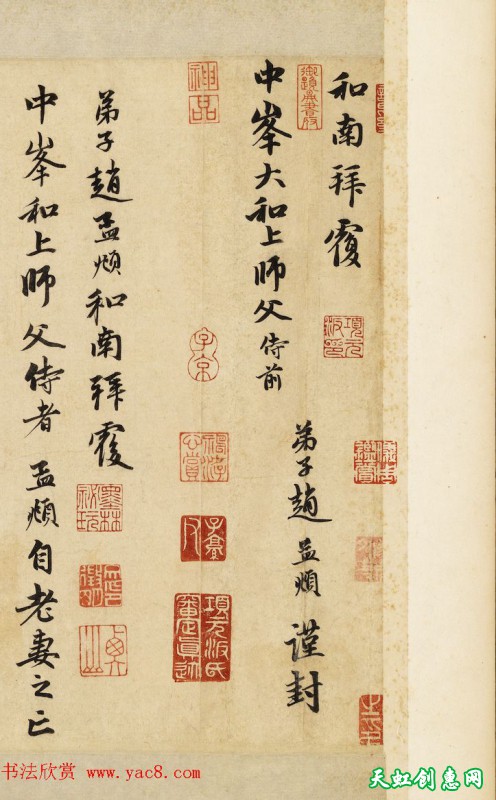 和南拜覆
中峯大和上師父侍前
弟子趙孟頫謹封
弟子趙孟頫和南拜覆
中峯和上師父侍者孟頫自老妻之亡
神品
子京
項元汴印
項元汴氏審定真跡
书法欣赏 www.yac8.com
天虹创惠网